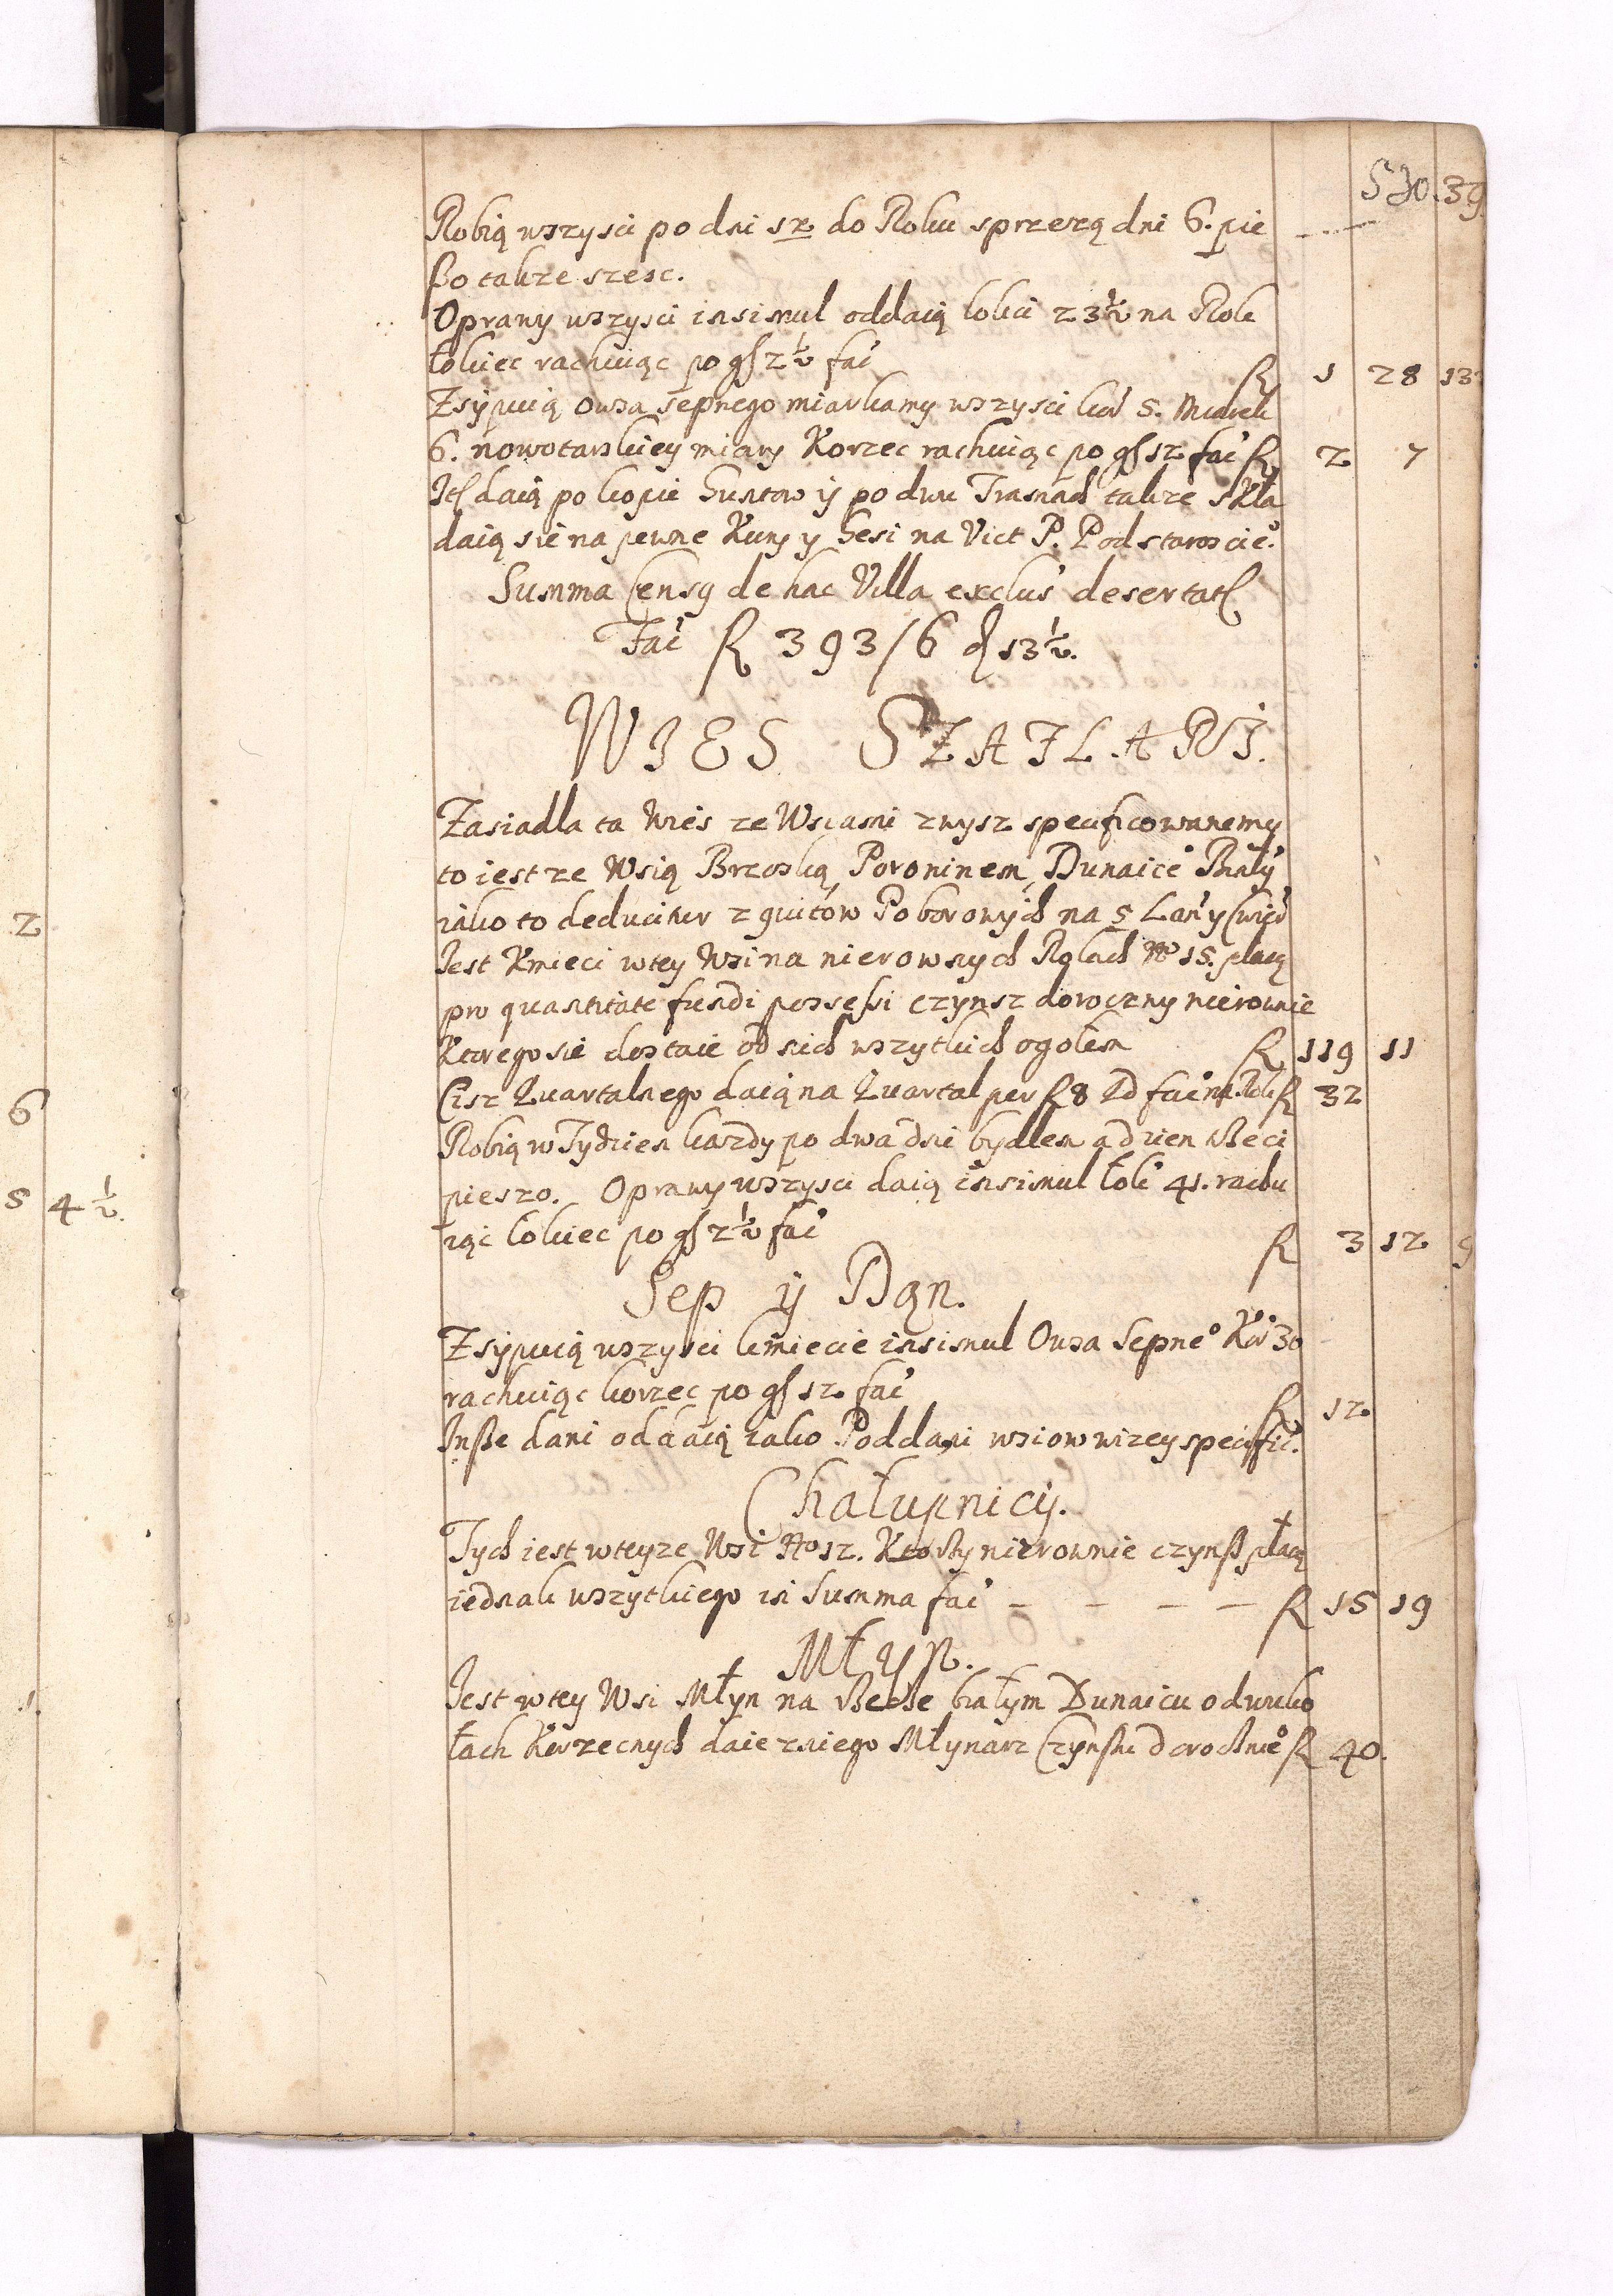 530. 39
Robią wszysci po dni 12 do Roku sprzezą dni 6. pie
ßo takze szesc.
Oprawy wszysci insimul oddaią lokci 23½ na Rok
łokiec rachuiąc po gſ 2½ fać ƒl 1 28 13
Zsypuią owsa sepnego miarkamy wszysci kor 5. Miarek
6. nowotarskiey miary Korzec rachuiąc po gſ 12 fać ƒl 2 7
Itſ daią po kopie Guntow ÿ po dwu Trasnach takze skła
daią sie na pewne Kury y Gesi na Vict P. Podstaroscie°
Summa Censỹ de hac Villa exclus desertatſ
Fać ƒl 393/6 ₰ 13½.
WIES SZAFLARŸ.
Zasiadla ta Wies ze Wsiami zwysz specificowanemy
to iest ze Wsią Brzoską, Poroninem, Dunaice° Biały
iako to deducitur z quitow Poborowych na 5 Lany Cwier
Iest Kmieci w tey Wsi na nierownych Rolach No 15. placą
pro quantitate fundi possessi czynsz doroczny nierownie
Ktorego sie dostaie od nich wszytkich ogołem ƒl 119 11
Cisz Quartalnego daią na Quartal per ƒl 8 Id facit na Rok ƒl 32
Robią w Tydzien kazdy po dwa dni bydlem a dzien trzeci
pieszo. Oprawy wszysci daią insimul łok 41. rachu
iąc łokiec po gſ 2½ fać ƒl 3 12 9
Sep ÿ Dan.
Zsypuią wszysci kmiecie insimul Owsa Sepne° Kor 30
rachuiąc korzec po gſ 12. fać ƒl 12
Inße dani oddaią iako Poddani wsiow wizey specific.
Chałupnicÿ.
Tych iest w teyze Wsi No 12. Ktorzy nierownie czynsz płacą
iednak wszytkiego in Summa fać – – – – ƒl 15 19
Młyn.
Iest w tey Wsi Młyn na rzecze białym Dunaicu o dwu ko
łach Korzecnych daie z niego Młynarz Czynszu dorocznie° ƒl 40.
2
6
5 4½.
1.